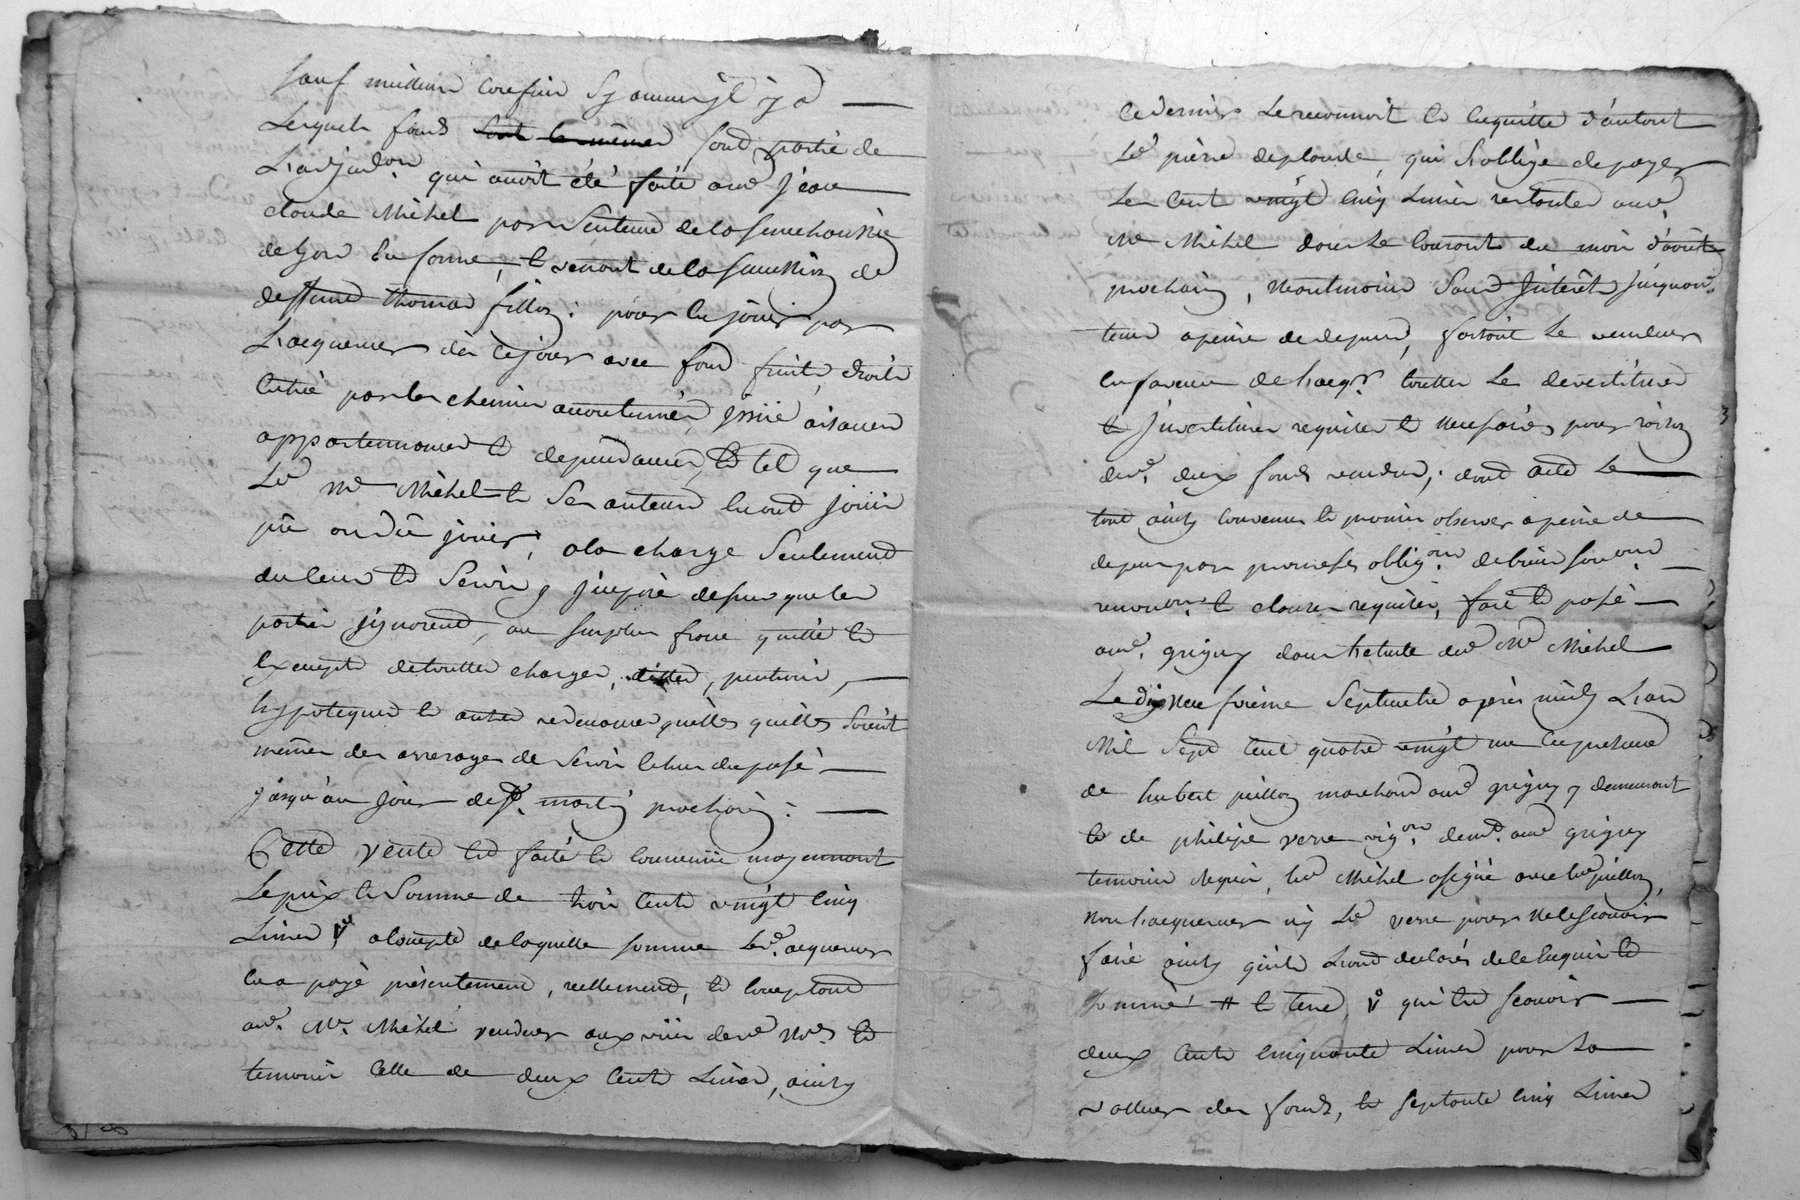 sauf meilleurs confins sy aucuns jl y a
Lesquels fonds sont le mêmes sont partie de
L'adjud.on qui avoit été faite aud jean
claude Michel par Sentence de la senechaussée
de lyon En forme, et venant de la succession de
deffunt thomas fillon: pour En joüir par
L'acquereur dès ce jour avec fond fruits, droits
Entrée par les chemins accoutumés, jssüe aisances
appartenances et dependances, Et tel que
Led me Michel et Ses auteurs En ont joüii
pû ou dû joüir, a la charge Seulement
du Cens Et Servis y jmposé depuis que les
parties jgnorent, au surplus franc quitte et
Exempt de touttes charges, dettes, pentions,
hypoteques et autres redevances quelles qu'elles soient
même des arrerages de Servis Echus du passé
jusqu'au jour de St. martin prochain:
Cette vente Est faite et convenüe moyennant
Le prix et Somme de trois Cents vingt Cinq
Livres V a Compte de laquelle somme led. acquereur
En a payé présentement, reellement, Et Comptant
aud. Me. Michel vendeur aux vües desd Nres Et
temoins Celle de deux Cents Livres, ainsy
Ce dernier Le reconnoit Et Enquitte d'autant
Led pierre deplaude, qui s'oblige de payer
Les Cent vingt Cinq Livres restantes aud.
Me Michel dans Le Courant du mois d'août
prochain, neantmoins Sans Jnterêts jusqu'au
tems a peine de depens, faisant Le vendeur
En faveur de L'acqr. touttes Les devestitures
et Jnvestitures requises et necessaires pour raison
desd. deux fonds vendus; dont acte Le
tout ainsy convenu et promis observer a peine de
depens par promesses oblig.ons de biens soum.ons
renon.ons et clauses requises, fait Et passé
aud. grigny dans L'etude dud Me Michel
Le dix neufvieme Septembre après midy L'an
Mil Sept Cent quatre vingt un En presence
de hubert peillon marchand aud grigny y demeurant
et de philipe verre vig.on dem.t aud grigny
temoins requis, led Michel a signé avec led peillon,
non L'acquereur ny Led verre pour ne le sçavoir
faire ainsy qu'ils L'ont declaré de ce Enquis Et
sommés # et terre, V qui Est sçavoir
deux Cents Cinquante Livres pour La
valleur des fonds, et septante Cinq Livres